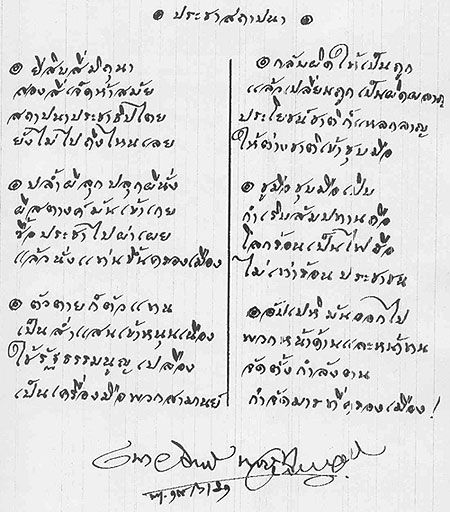 ๏ ประชาสถาปนา ๏
๏ ยี่สิบสี่มิถุนา
สองสี่เจ็ดห้าสมัย
สถาปนาประชาธิปไตย
ยังไม่ไปถึงไหนเลย
๏ ปล้ำผีลุก ปลุกผีนั่ง
ผีสตางค์มันเข้าเกย
ซื้อประชาไปผ่าเผย
แล้วนั่งแท่นขึ้นครองเมือง
๏ ตัวตายก็ตัวแทน
เป็นล่ำแสนเข้าหนุนเนื่อง
ใช้รัฐธรรมนูญเปลือง
เป็นเครื่องมือพวกสามานย์
๏ กลับผิดให้เป็นถูก
แล้วเปลี่ยนถูกเป็นผิดผลาญ
ประโยชน์ชาติก็แหลกลาญ
ให้ต่างชาติเข้าชุบมือ
๏ ชูมือชุบมือเปิบ
กำเริบสัมปทานคือ
โลกร้อนเป็นไฟฮือ
ไม่เท่าร้อนประชาชน
๏ อัปเปหิมันออกไป
พวกหน้าด้านและหน้าทน
จัดตั้งกำลังคน
กำจัดมารที่ครองเมือง!